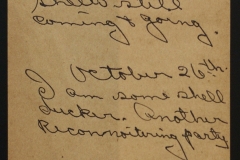 Shells still
coming & going.
October 26th.
I am some shell
ducker. Another
Reconnoitering party